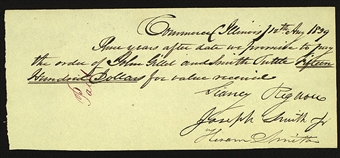 Commerce (Illinois) 12th Aug 1839
years after date we promise to pay
the order of John Gillet and Smith Tuttle Fifteen
Hundred Dollars for value received
Paid
Sidney Rigdon
Joseph Smith Jr
Hiram Smith